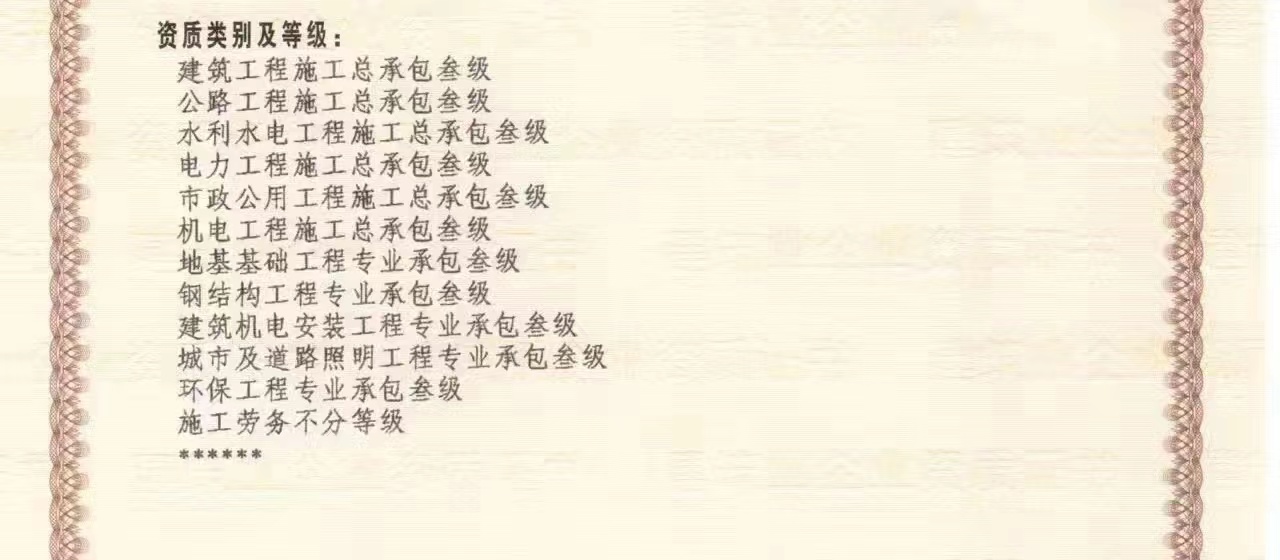 资质类别及等级：
建筑工程施工总承包叁级
公路工程施工总承包叁级
水利水电工程施工总承包叁级
电力工程施工总承包叁级
市政公用工程施工总承包叁级
机电工程施工总承包叁级
地基基础工程专业承包叁级
钢结构工程专业承包叁级
建筑机电安装工程专业承包叁级
城市及道路照明工程专业承包叁级
环保工程专业承包叁级
施工劳务不分等级
******